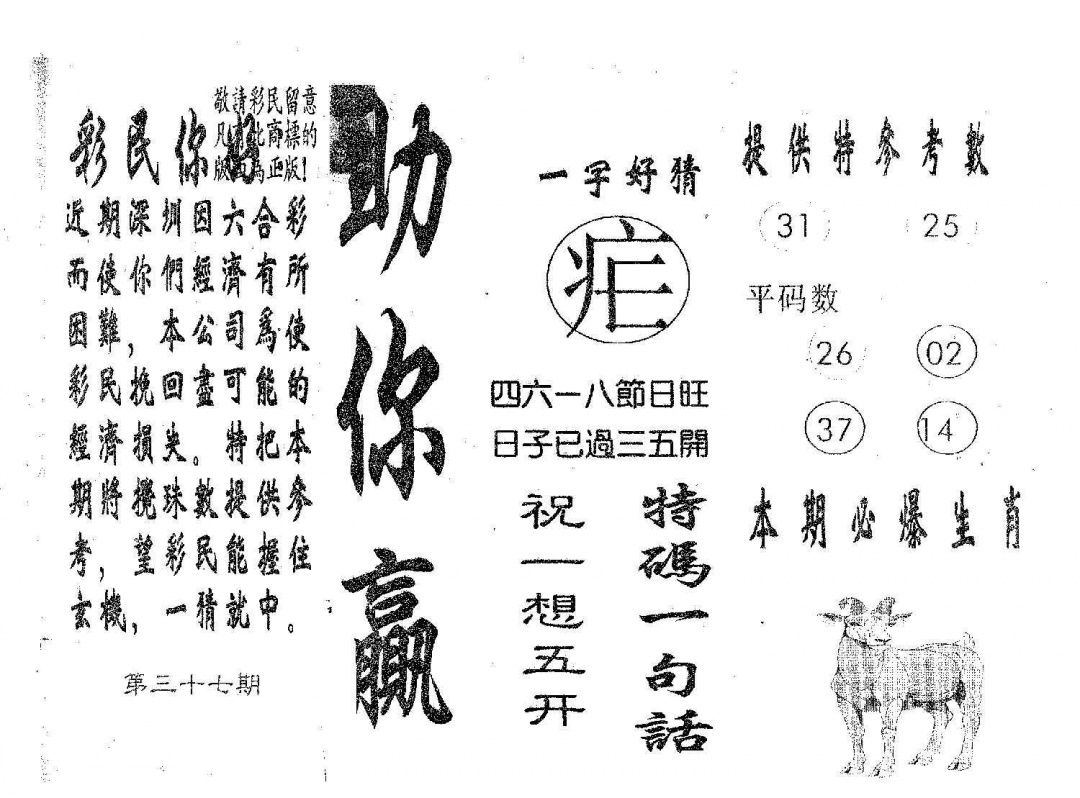 敬請彩民留意
凡有此商標的
版面為正版！
彩民你好
近期深圳因六合彩
而使你們經濟有所
困難，本公司爲使
彩民挽回盡可能的
經濟損失。特把本
期將攪珠數提供參
考，望彩民能握住
玄機，一猜就中。
第三十七期
助你贏
一字好猜
四六一八節日旺
日子已過三五開
特碼一句話
祝一想五开
提供特參考數
31 25
平码数
26 02
37 14
本期必爆生肖